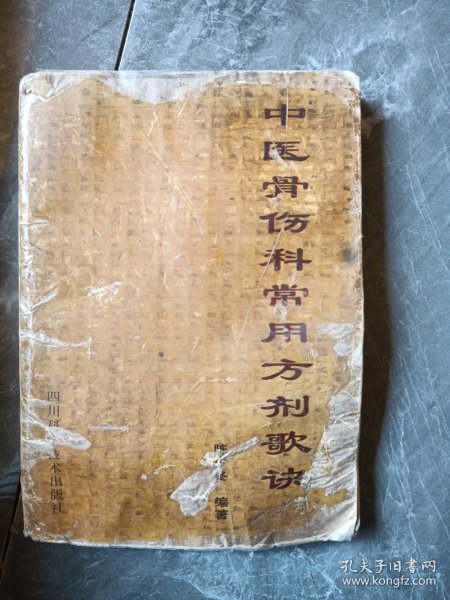 中医骨伤科常用方剂歌诀
编著
四川科 技术出版社
孔夫子旧书网
www.kongfz.com